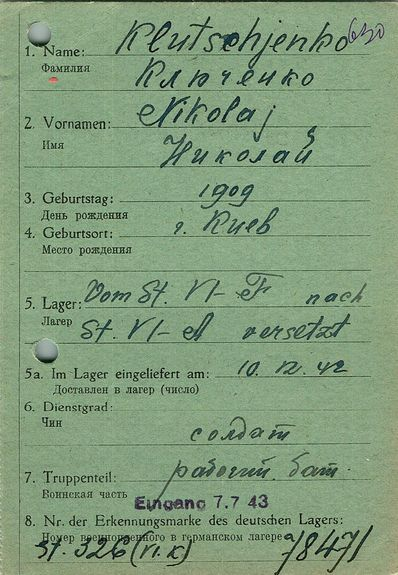 650
1. Name: Klutschjenko
Фамилия Ключенко
2. Vornamen: Nikolaj
Имя Николай
3. Geburtstag: 1909
День рождения
4. Geburtsort: г. Киев
Место рождения
5. Lager: Vom St. VI-F nach
Лагерь St. VI-A versetzt
5a. Im Lager eingeliefert am: 10. 12. 42
Доставлен в лагерь (число)
6. Dienstgrad:
Чин солдат
7. Truppenteil: рабочий. бат.
Воинская часть Eingang 7. 7. 43
8. Nr. der Erkennungsmarke des deutschen Lagers:
Номер военнопленного в германском лагере
St. 326 (VI. K) 78471